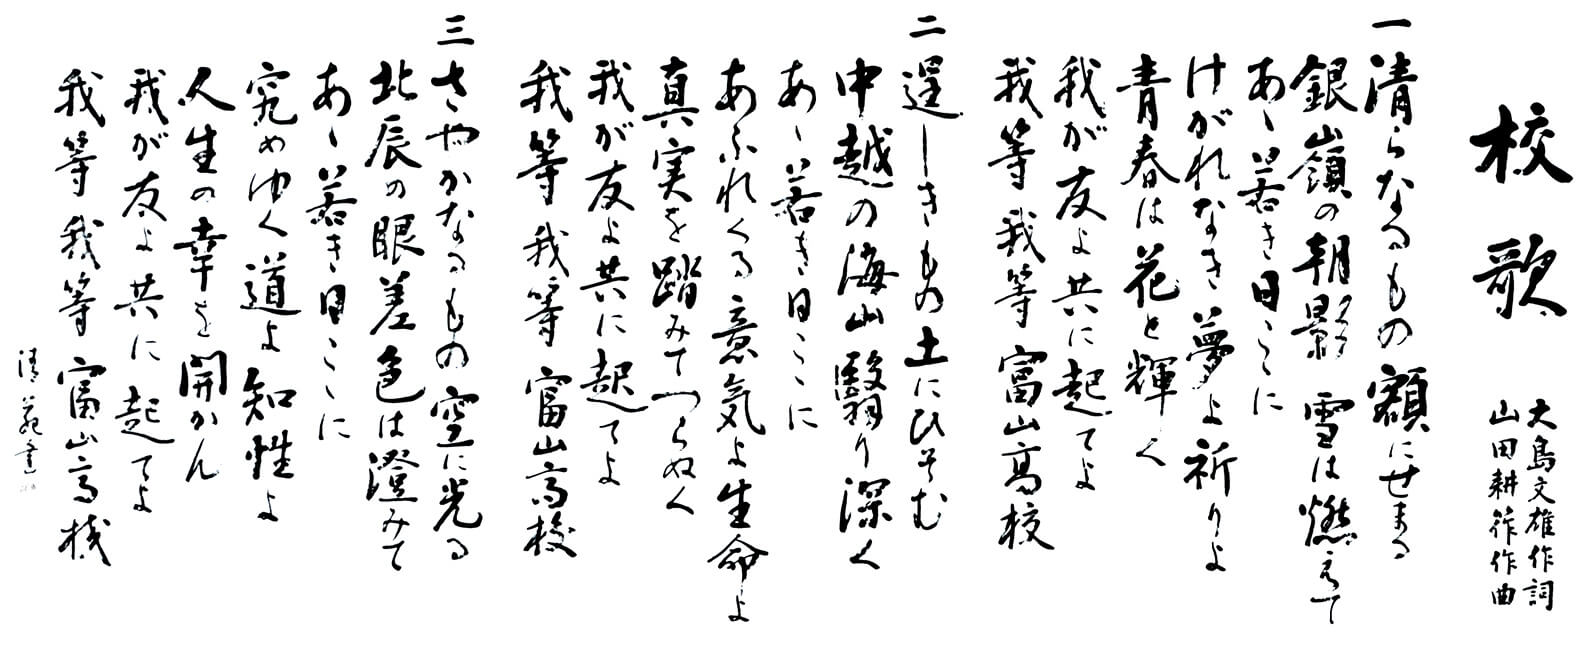 校歌
大島文雄作詞
山田耕筰作曲
一 清らなるもの額にせまる
銀嶺の朝影 雪は燃えて
あゝ若き日こゝに
けがれなき夢よ祈りよ
青春は花と輝く
我が友よ共に起てよ
我等我等富山高校
二 逞しきもの土にひそむ
中越の海山翳り深く
あゝ若き日こゝに
あふれくる意気よ生命よ
真実を踏みてつらぬく
我が友よ共に起てよ
我等我等富山高校
三 さやかなるもの空に光る
北辰の眼差色は澄みて
あゝ若き日こゝに
究めゆく道よ知性よ
人生の幸を開かん
我が友よ共に起てよ
我等我等富山高校
清苑書